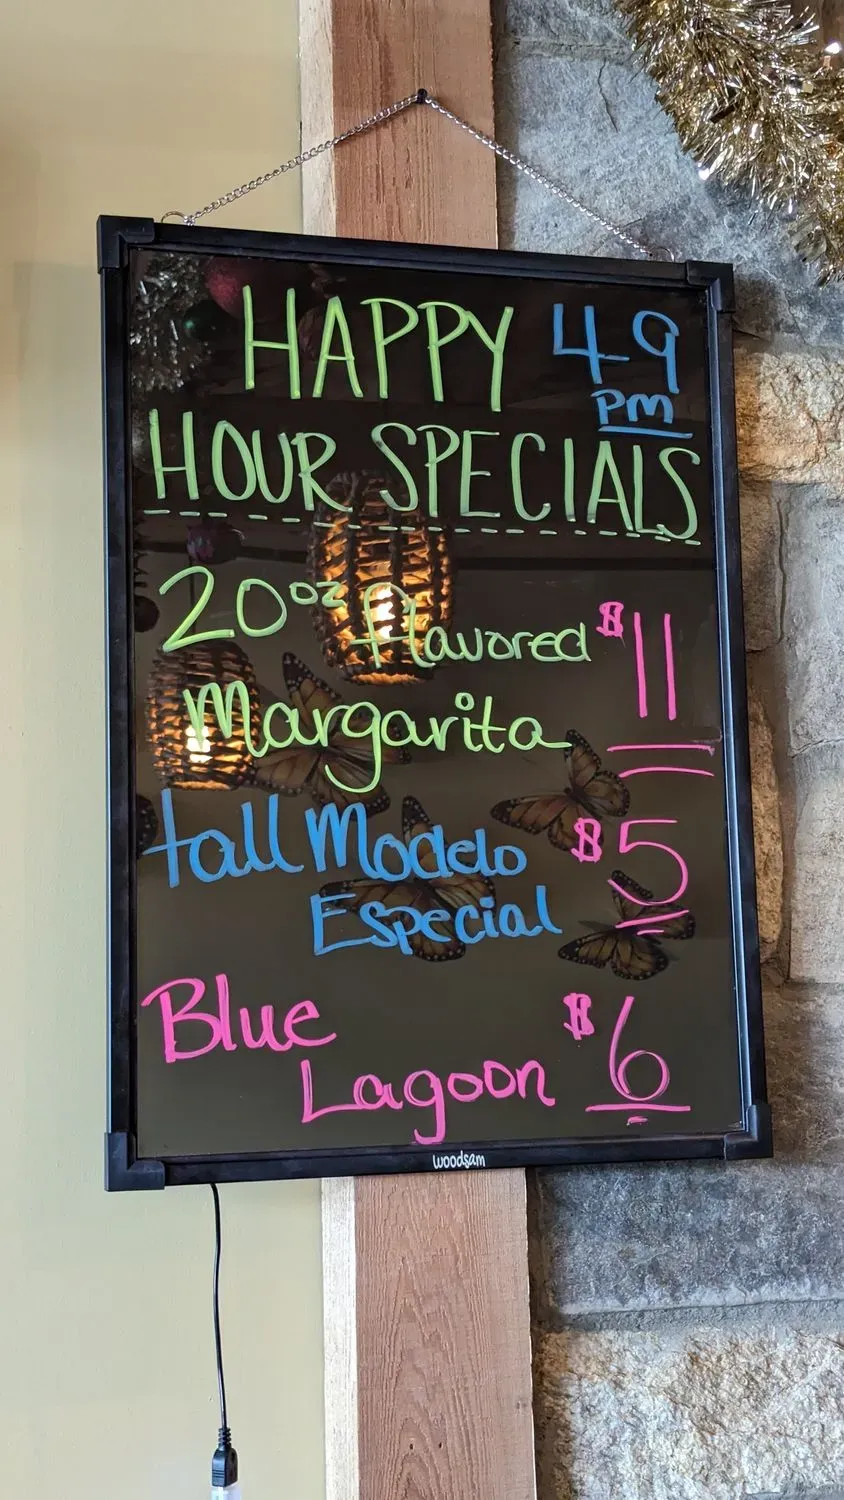 HAPPY 4-9
PM
HOUR SPECIALS
20oz flavored $11
Margarita
tall Modelo $5
Especial
Blue $6
Lagoon
woodsam